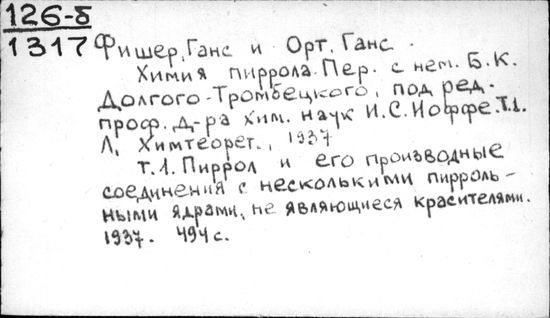 126-б
1317
Фишер, Ганс и Орт, Ганс.
Химия пиррола. Пер. с нем. Б.К.
Долгого-Тромбецкого, под ред.
проф. д-ра хим. наук И.С. Иоффе. т.1.
Л., Химтеорет., 1937
т.1. Пиррол и его производные
соединения с несколькими пирроль-
ными ядрами, не являющиеся красителями.
1937. 494 с.